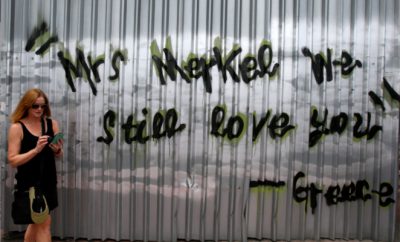 "Mrs Merkel we
still love you"
- Greece